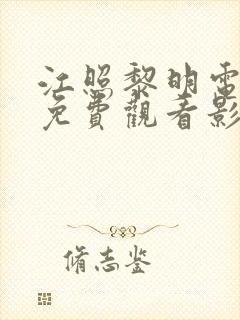 江照黎明電
免費觀看影
脩志鉴